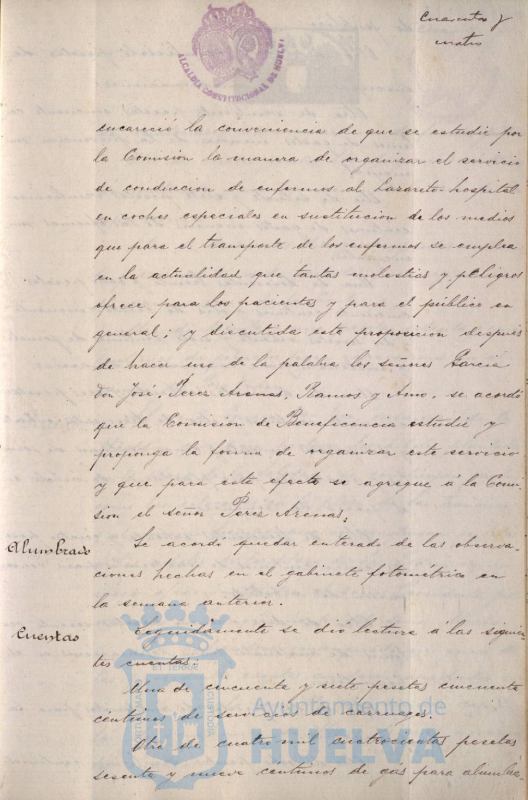 Cuarenta y
cuatro
ALCALDIA CONSTITUCIONAL DE HUELVA
encareció la conveniencia de que se estudie por
la Comisión la manera de organizar el servicio
de conduccion de enfermos al Lazareto-hospital
en coches especiales en sustitucion de los medios
que para el transporte de los enfermos se emplea
en la actualidad que tantas molestias y peligros
ofrece para los pacientes y para el público en
general; y discutida esta proposicion despues
de hacer uso de la palabra los señores García
Don José, Perez Arenas, Ramos y Amo, se acordó
que la Comision de Beneficencia estudie y
proponga la forma de organizar este servicio
y que para este efecto se agregue á la Comi-
sion el señor Perez Arenas.
Alumbrado
Se acordó quedar enterado de las observa-
ciones hechas en el gabinete fotométrico en
la semana anterior.
Cuentas
Seguidamente se dió lectura á las siguien-
tes cuentas:
Una de cincuenta y siete pesetas cincuenta
centimos de servicio de carruajes.
Otra de cuatro mil cuatrocientas pesetas
sesenta y nueve céntimos de gás para alumbra-
Ayuntamiento de
HUELVA